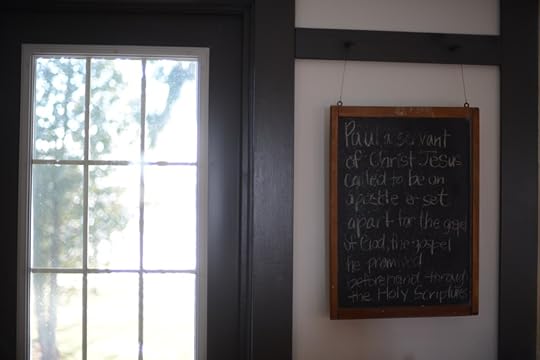 Paul a servant
of Christ Jesus
called to be an
apostle & set
apart for the gospel
of God, the gospel
he promised
beforehand through
the Holy Scriptures